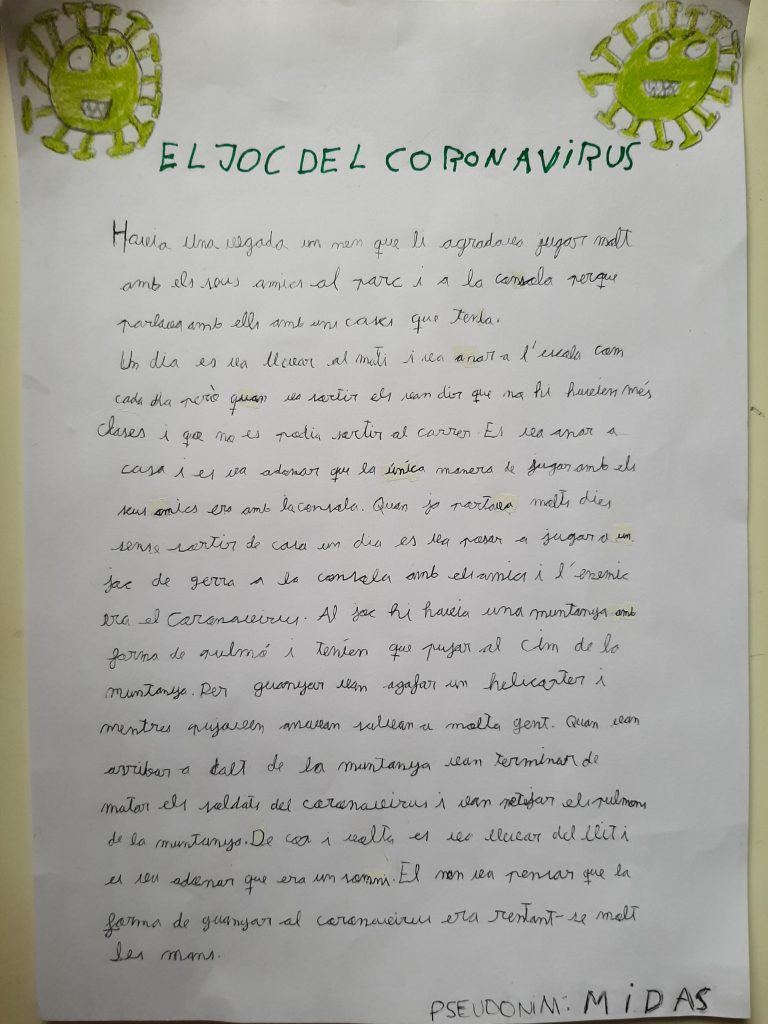 EL JOC DEL CORONAVIRUS
Havia una vegada un nen que li agradava jugar molt
amb els seus amics al parc i a la consola perque
parlava amb ells amb uns cascs que tenia.
Un dia es va llevar al mati i va anar a l'escola com
cada dia però quan va sortir els van dir que no hi havien més
clases i que no es podia sortir al carrer. Es va anar a
casa i es va adonar que la única manera de jugar amb els
seus amics era amb la consola. Quan ja portava molts dies
sense sortir de casa un dia es va posar a jugar a un
joc de gerra a la consola amb els amics i l'enemic
era el Coronavirus. Al joc hi havia una muntanya amb
forma de pulmó i tenien que pujar al cim de la
muntanya. Per guanyar van agafar un helicopter i
mentres pujaven anavan salvan a molta gent. Quan van
arribar a dalt de la muntanya van terminar de
matar els soldats del coronavirus i van netejar els pulmons
de la muntanya. De cop i volta es va llevar del llit i
es va adonar que era un somni. El nen va pensar que la
forma de guanyar al coronavirus era rentant-se molt
les mans.
PSEUDONIM: MiDAS